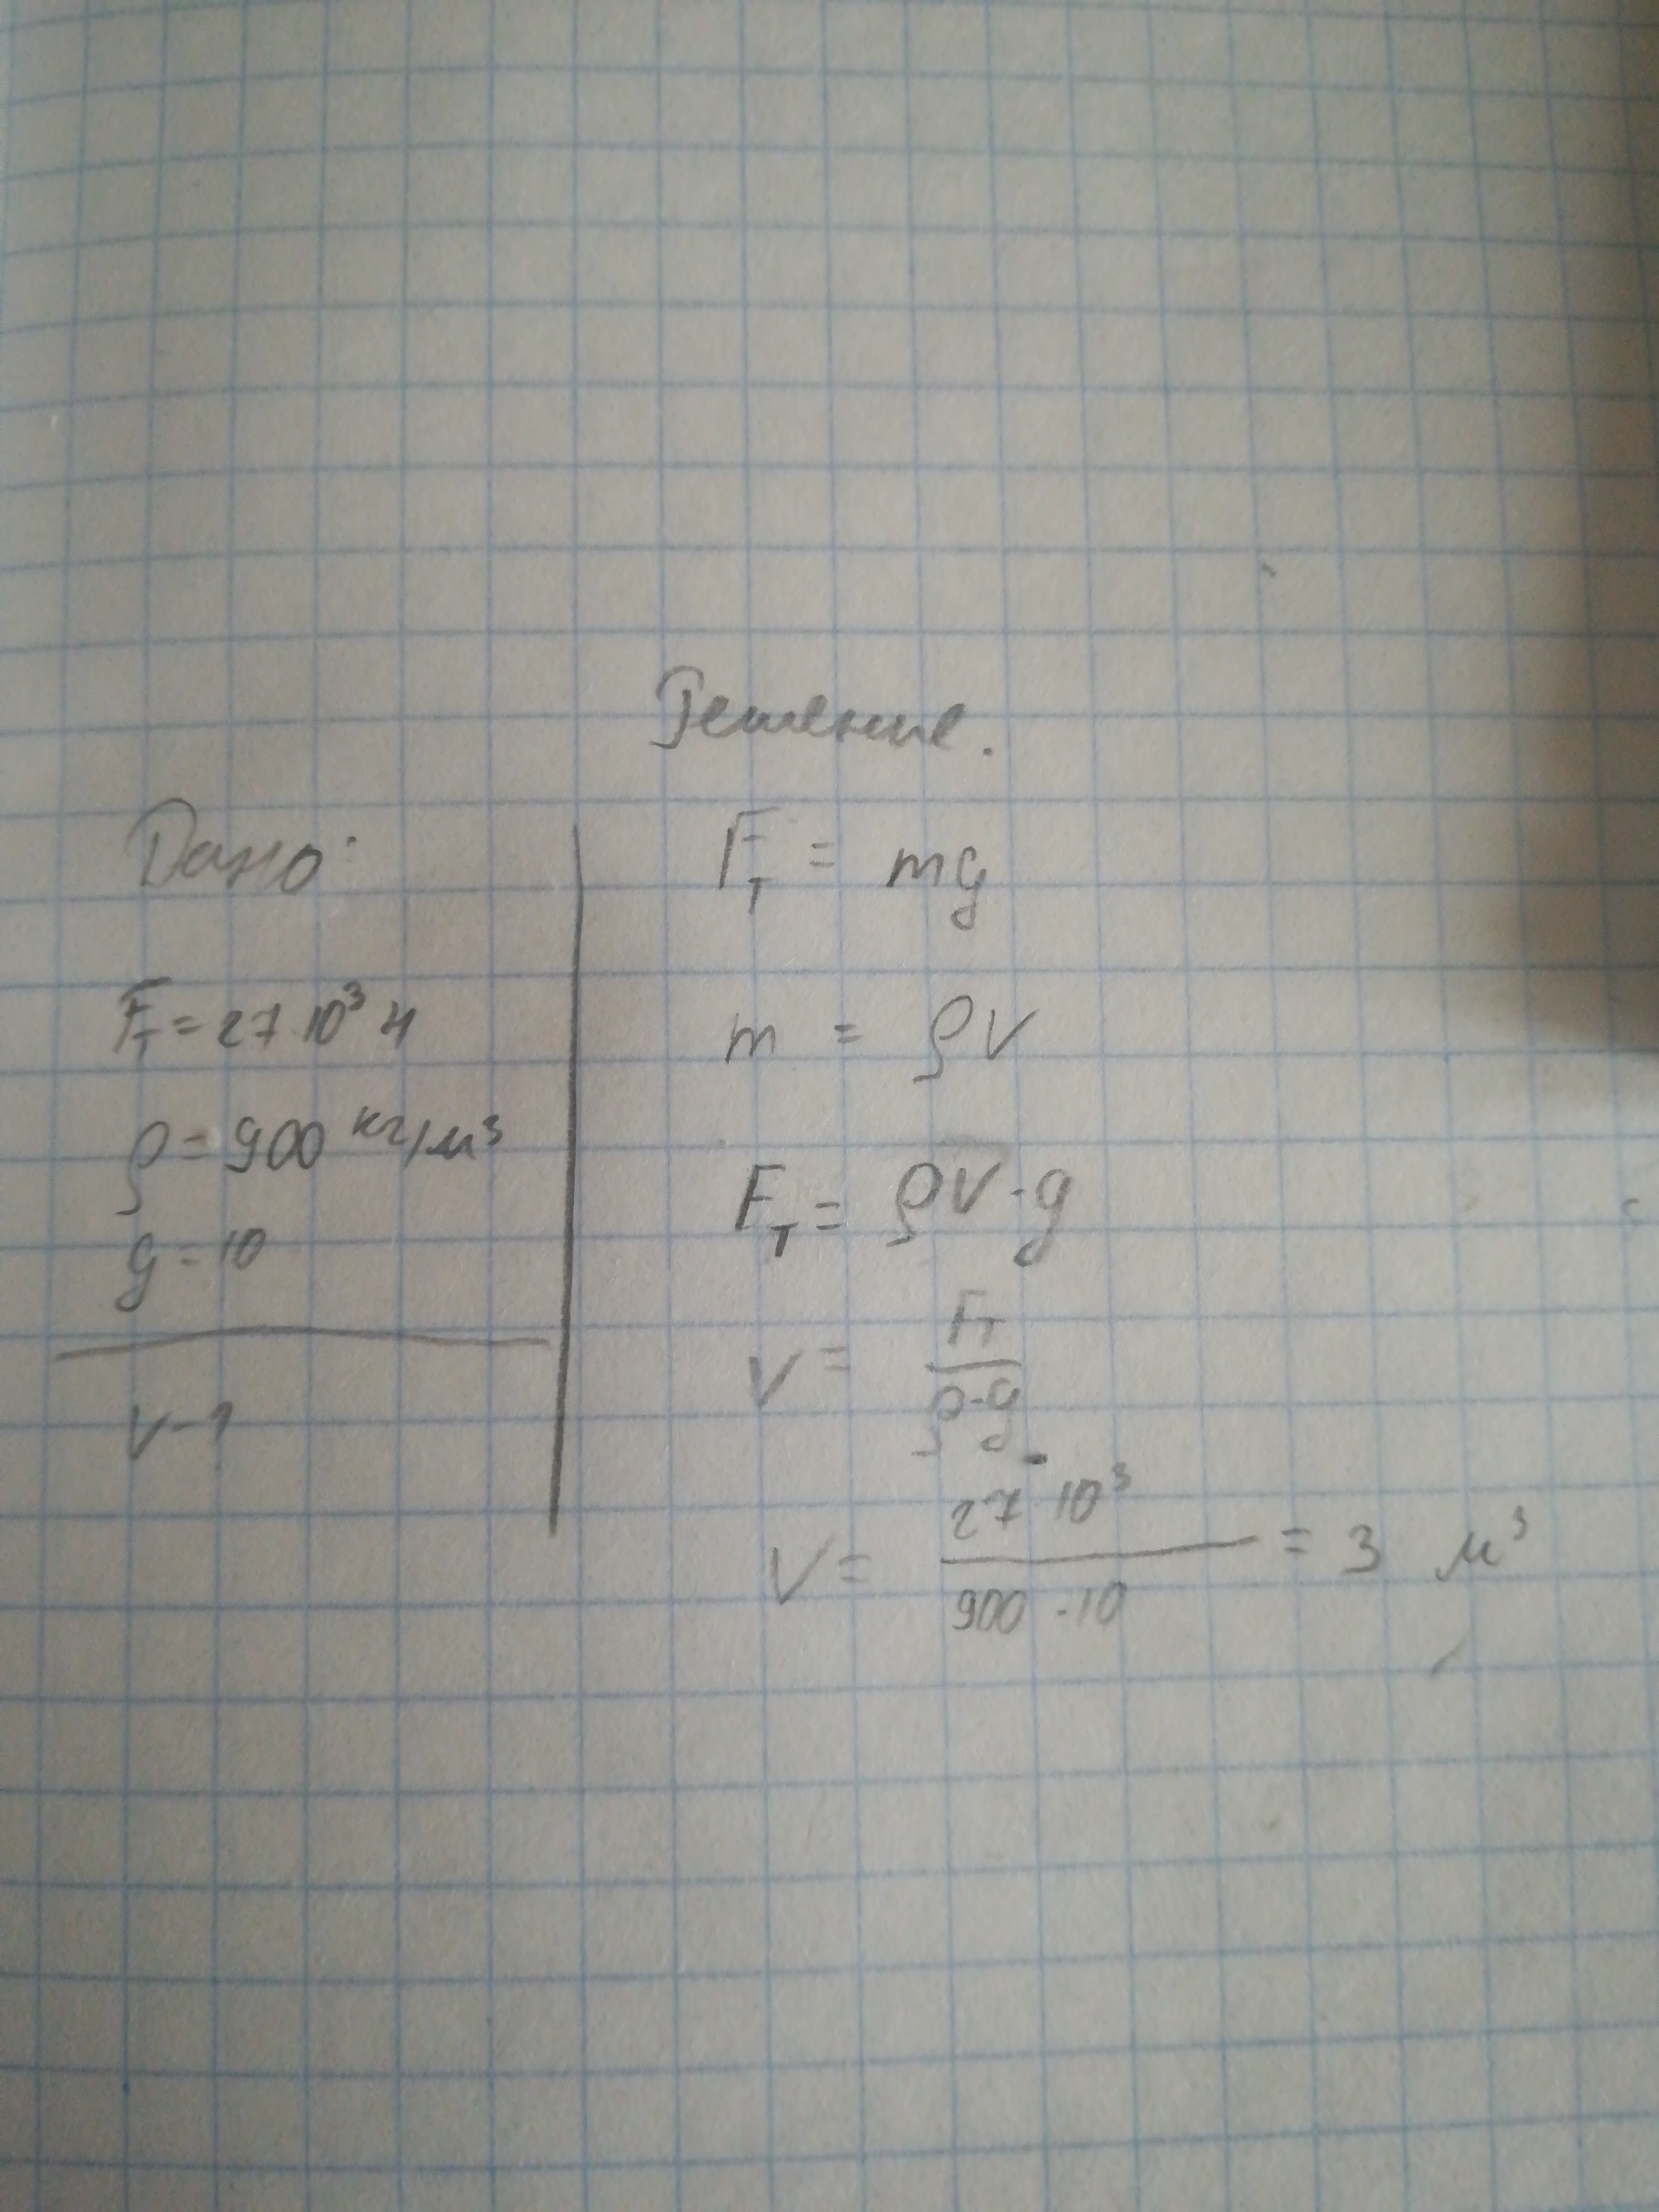 Решение.
Дано:
F_T = 27 · 10³ Н
ρ = 900 кг/м³
g = 10
V - ?
F_T = mg
m = ρV
F_T = ρV · g
V = F_T / ρ · g
V = 27 · 10³ / 900 · 10 = 3 м³